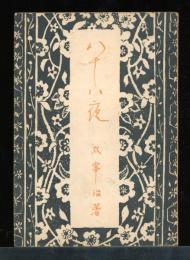 八十八夜
太宰治著